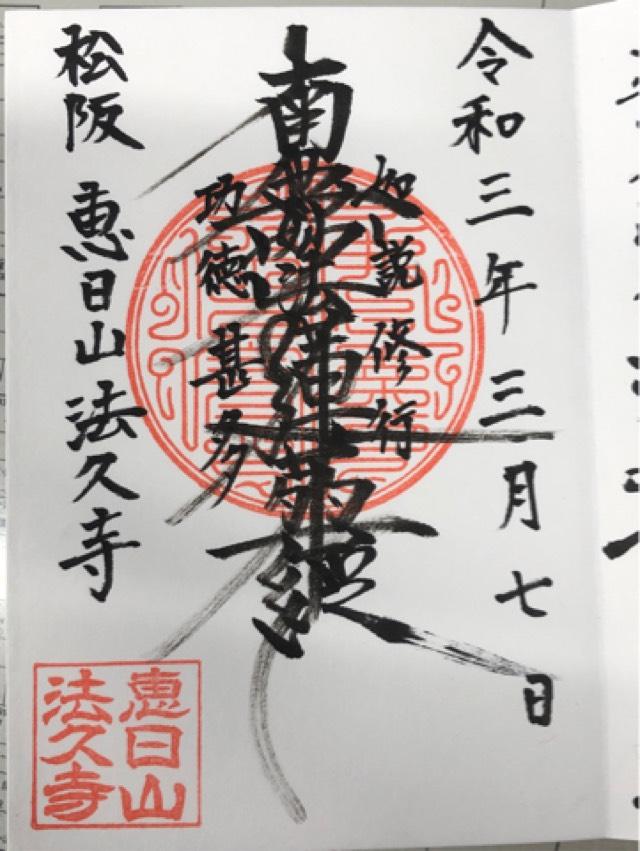 令和三年三月七日
如説修行
南無妙法蓮華経
功徳甚多
松阪 恵日山法久寺
恵日山
法久寺